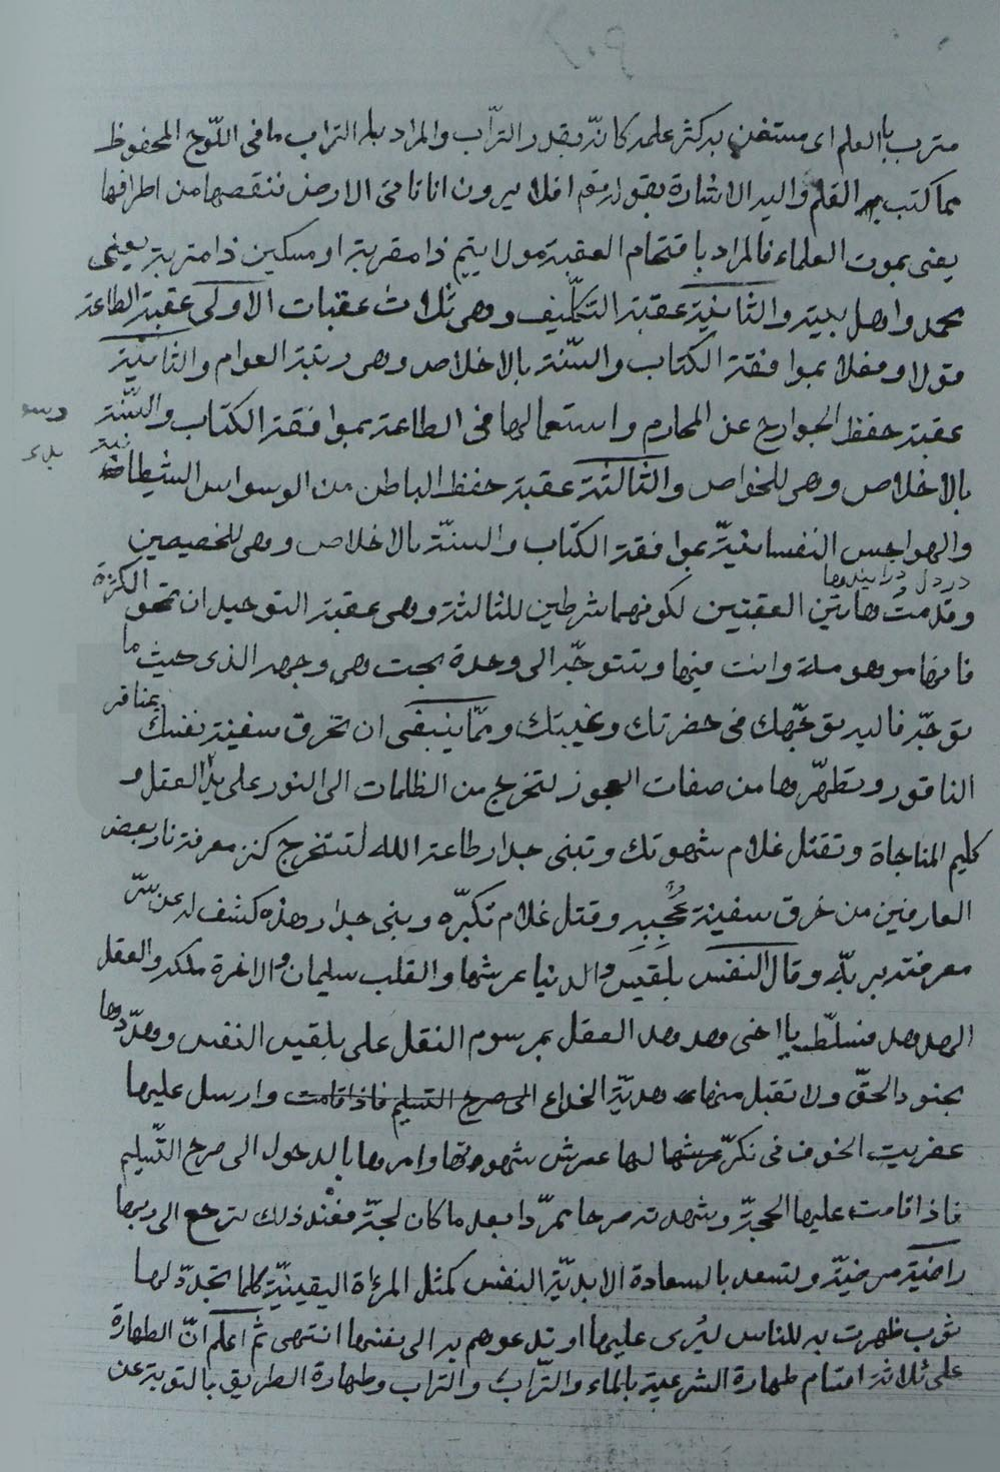 مترب بالعلم اى مستغن به كثر علمه كانه بقدر التراب والمراد بالتراب ما فى اللوح المحفوظ
مما كتب القلم واليه الاشارة بقوله افلا يرون انا ناتى الارض ننقصها من اطرافها
يعنى بموت العلماء فالمراد باقتحام العقبة مولا يتيم ذا مقربة او مسكين ذا متربة يعنى
محمد واهل بيته والثانية عقبة التكليف وهى ثلاث عقبات الاولى عقبة الطاعة
قولا وفعلا بموافقة الكتاب والسنة بالاخلاص وهى رتبة العوام والثانية
عقبة حفظ الجوارح عن المحارم واستعمالها فى الطاعة بموافقة الكتاب والسنة
بالاخلاص وهى للخواص والثالثة عقبة حفظ الباطن من الوسواس الشيطانية
والهواجس النفسانية بموافقة الكتاب والسنة بالاخلاص وهى للخصيصين
وقدمت هاتين العقبتين لكونهما شرطين للثالثة وهى عقبة التوحيد ان تمحو الكثرة
فانها موهومة وانت فيها وتتوجه الى وحدة بحت وهى وجهه الذى حيث ما
توجه فاليه توجهك فى حضرتك وغيبتك ومما ينبغى ان تخرق سفينة نفسك بمناقر
الناقور وتطهرها من صفات العجوز لتخرج من الظلمات الى النور على يد العقل و
كليم المناجاة وتقتل غلام شهوتك وتبنى جدار طاعة الله لتستخرج كنز معرفة نار بعض
العارفين من خرق سفينة عجبه وقتل غلام تكبره وبنى جدار هذه كشف له عن سر
معرفته بربه وقال النفس بلقيس والدنيا عرشها والقلب سليمان والاخرة ملكه والعقل
الهدهد فسلط يا اخى هدهد العقل بمرسوم النقل على بلقيس النفس وهددها
بجنود الحق ولا تقبل منها هدية الخداع الى صرح التسليم فاذا قامت وارسل عليها
عفريت الخوف فى نكر عرشها لها عرش شهوتها وامرها بالدخول الى صرح التسليم
فاذا قامت عليها الحجة وشهدته صرحا ممردا بعد ما كان لجة فعند ذلك ترجع الى ربها
راضية مرضية ولتسعد بالسعادة الابدية النفس كمثل المرءاة اليقينية كلما تجدد لها
ثوب ظهرت به للناس ليرى عليها او تدعوهم به الى نفسها انتهى ثم اعلم ان الطهارة
على ثلاثة اقسام طهارة الشرعية بالماء والتراب والتراب وطهارة الطريق بالتوبة عن